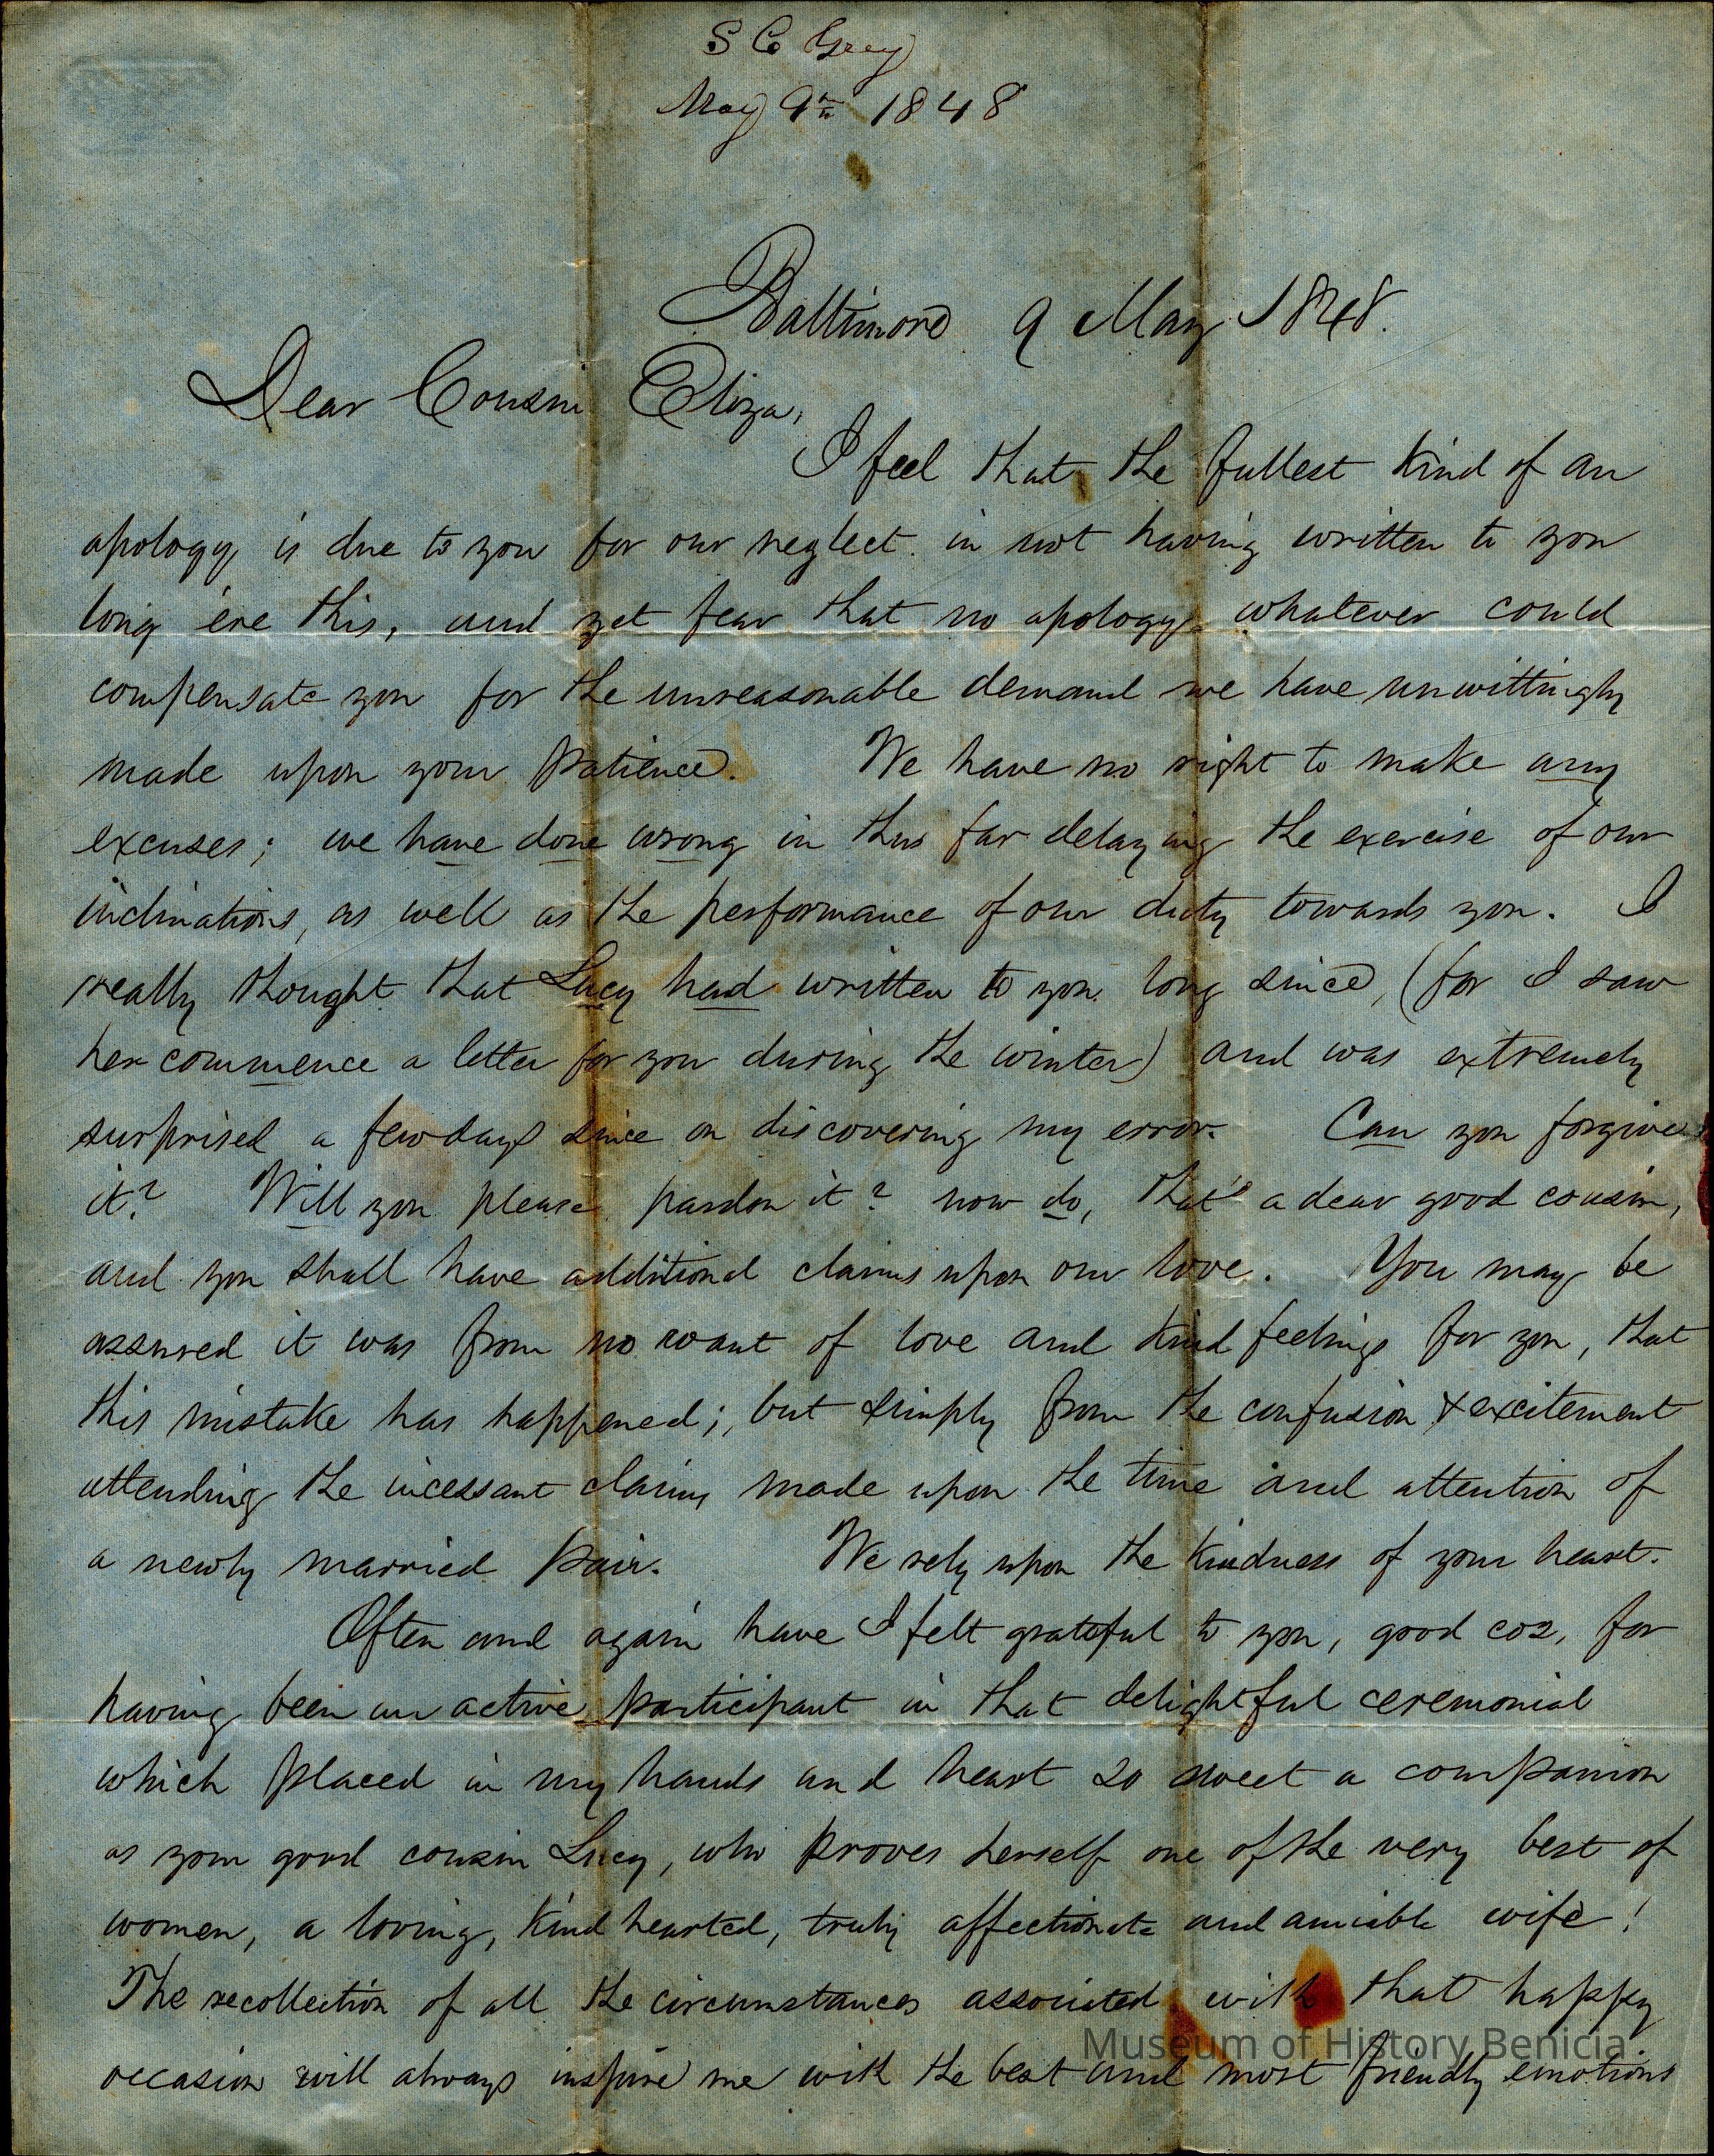 S C Grey
May 9th 1848
Baltimore 9 May 1848.
Dear Cousin Eliza,
I feel that the fullest kind of an
apology is due to you for our neglect in not having written to you
long ere this, and yet fear that no apology whatever could
compensate you for the unreasonable demand we have unwittingly
made upon your patience. We have no right to make any
excuses; we have done wrong in thus far delaying the exercise of our
inclinations, as well as the performance of our duty towards you. I
really thought that Lucy had written to you long since, (for I saw
her commence a letter for you during the winter) and was extremely
surprised a few days since on discovering my error. Can you forgive
it? Will you please pardon it? now do, that's a dear good cousin,
and you shall have additional claims upon our love. You may be
assured it was from no want of love and kind feelings for you, that
this mistake has happened; but simply from the confusion & excitement
attending the incessant claims made upon the time and attention of
a newly married pair. We rely upon the kindness of your heart.
Often and again have I felt grateful to you, good coz, for
having been an active participant in that delightful ceremonial
which placed in my hands and heart so sweet a companion
as your good cousin Lucy, who proves herself one of the very best of
women, a loving, kind hearted, truly affectionate and amiable wife!
The recollection of all the circumstances associated with that happy
occasion will always inspire me with the best and most friendly emotions
Museum of History Benicia